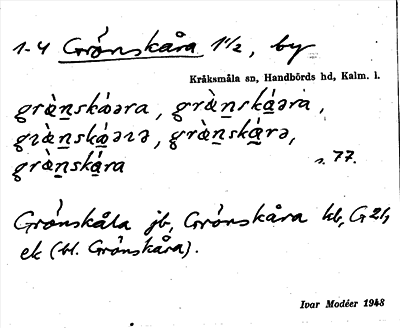 1-4 Grönskåra 1½, by
Kråksmåla sn, Handbörds hd, Kalm. l.
grὰ̀n̲skάəra, grὰ̀n̲skά̲əra,
grὰ̀n̲skά̲əɹə, grὰ̀n̲skά̲rə,
grὰ̀n̲skά̲ra s. 77.
Grönskåla jb, Grönskåra kb, G 21,
ek (bl. Grönskåra).
Ivar Modéer 1948